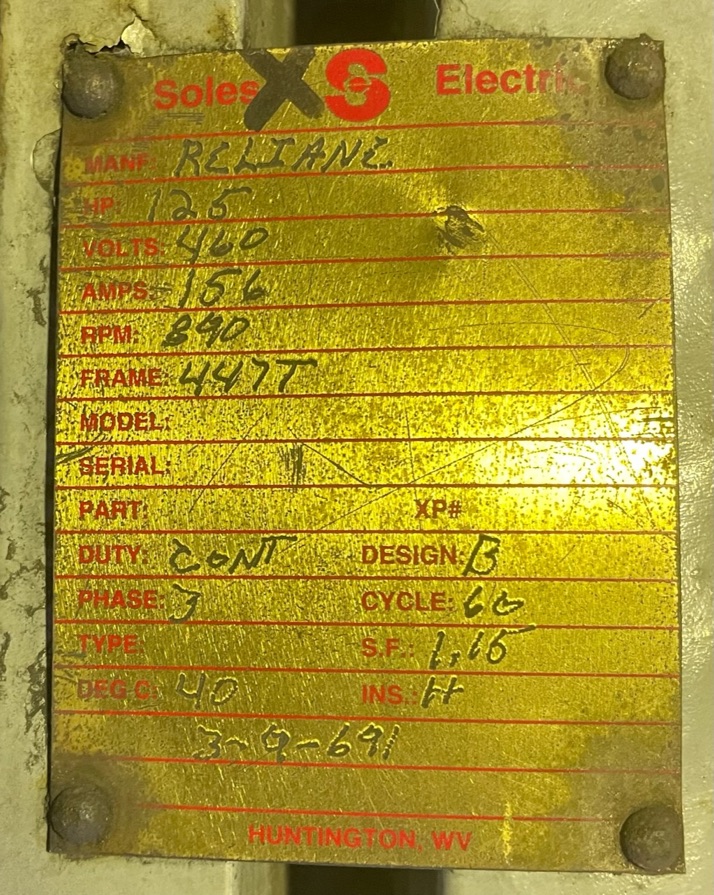 Soles XS Electric
MANF: RELIANE.
HP: 125
VOLTS: 460
AMPS: 156
RPM: 890
FRAME: 447T
MODEL:
SERIAL:
PART: XP#
DUTY: CONT DESIGN: B
PHASE: 3 CYCLE: 60
TYPE: S.F.: 1.15
DEG C: 40 INS.: H
3-9-691
HUNTINGTON, WV